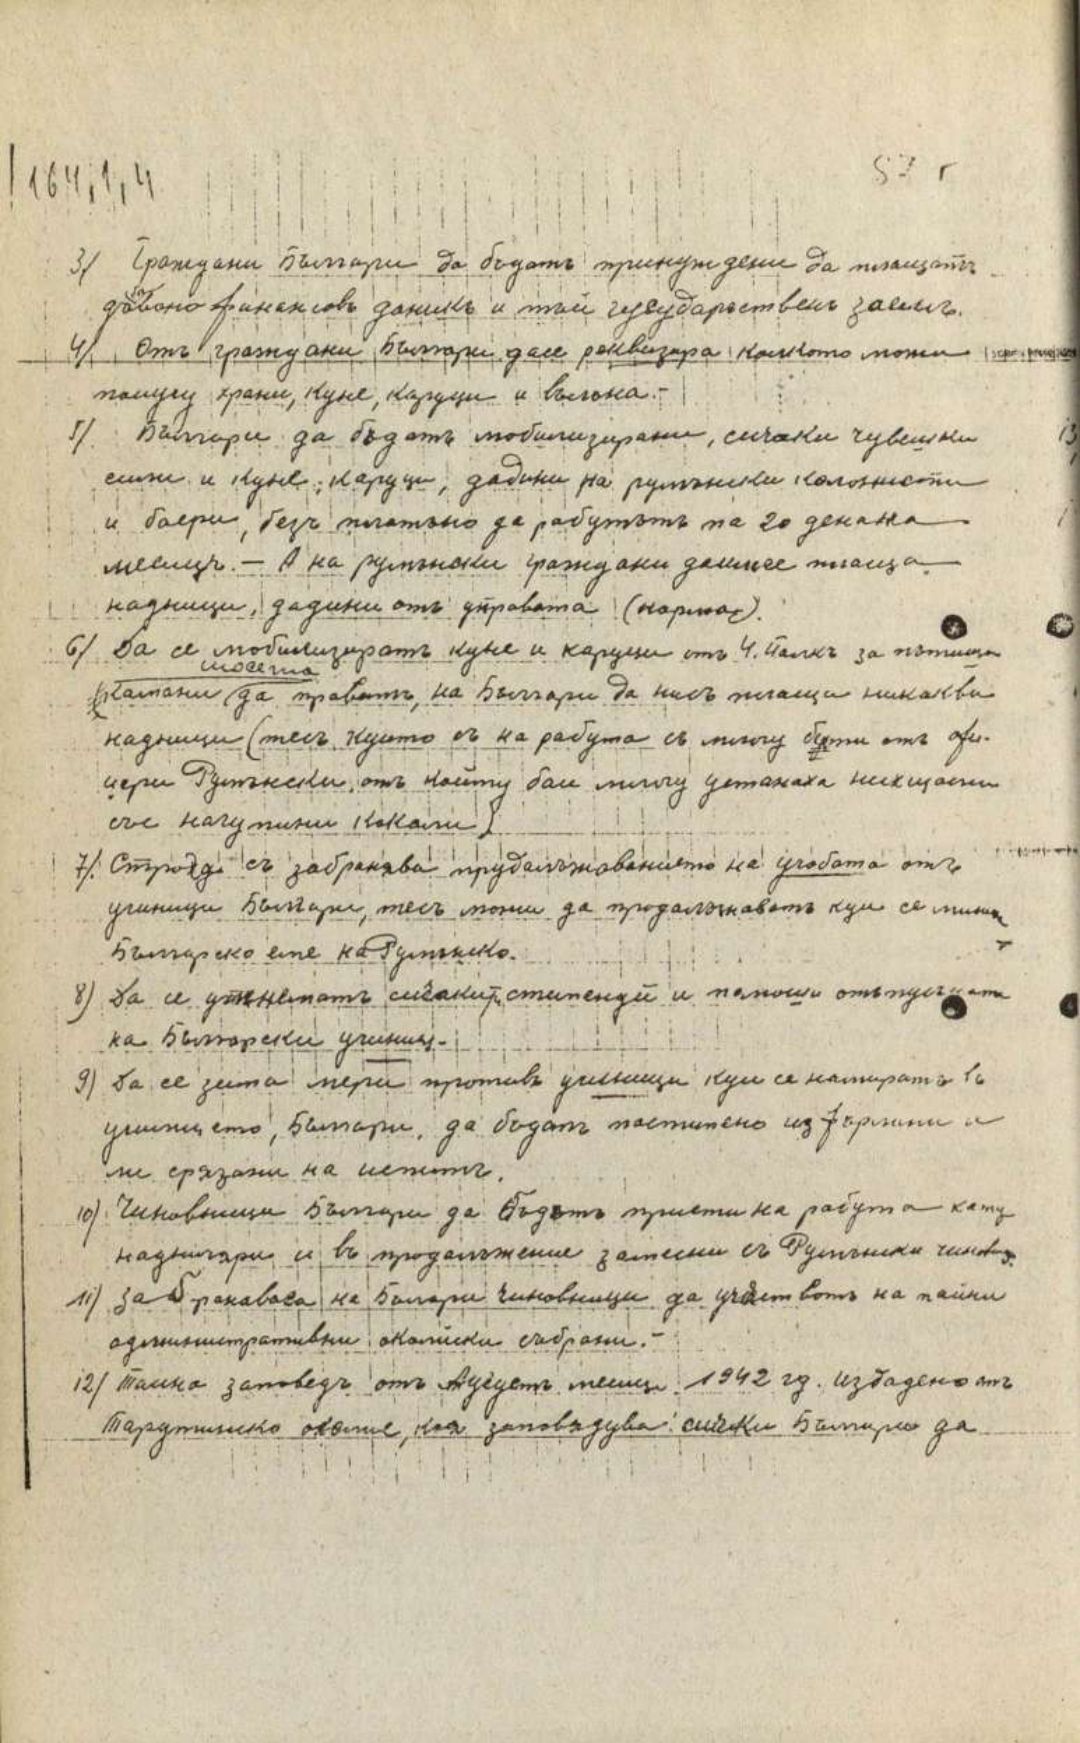 164,1,4
57 г
3/ Граждани Българи да бъдатъ принуждени да плащатъ
двойно финансовъ даникъ и тъй усударственъ заемъ.
4/. Отъ граждани Българи дасе реквизира колкото можи
полугу храни, куне, каруци и вълъна.-
5/. Българи да бъдатъ мобилизирани, сички чувешки
сили и куне, каруци, дадини на румънски колонисти
и боери, безъ платъно да работътъ па 20 денана
месицъ. - А на румънски граждани даимсе плаща
надници, дадини отъ управата (норма).
6/ Да се мобилизиратъ куне и каруци отъ Ч. Палкъ за пътища
шосета
Камани да праватъ, на Българи да нисъ плаща никакви
надници (тесъ куито съ на работа съ многу бити отъ офи-
цери Румънски, отъ който бои многу устанаха нихщасни
със начупини кокали)
7/. Строгу съ забранява прудалъжаванието на учобата отъ
ученици Българи, тесъ можи да продалъжаватъ куи се мини
Българско еме на Румънско.
8) Да се утнематъ сичкитъ стипендй и помощи отъпусната
на Български учиници.-
9) Да се зема мери противъ учиници куи се намиратъ въ
училището, Българи, да бъдатъ постипено изфърлини и
ли срязани на испитъ.
10) Чиновници Българи да бъдътъ приети на работа кату
надничари и въ продалъжение заместни съ Румънски чиновц.
11) Забранаваса на Българи Чиновници да участвотъ на тайни
административни околиски събрани.-
12/ Тайна заповедъ отъ Аугустъ месицъ 1942 гд. избадено отъ
Тарутинско околие, коя заповядува сички Българи да